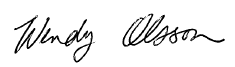 Wendy Olsson